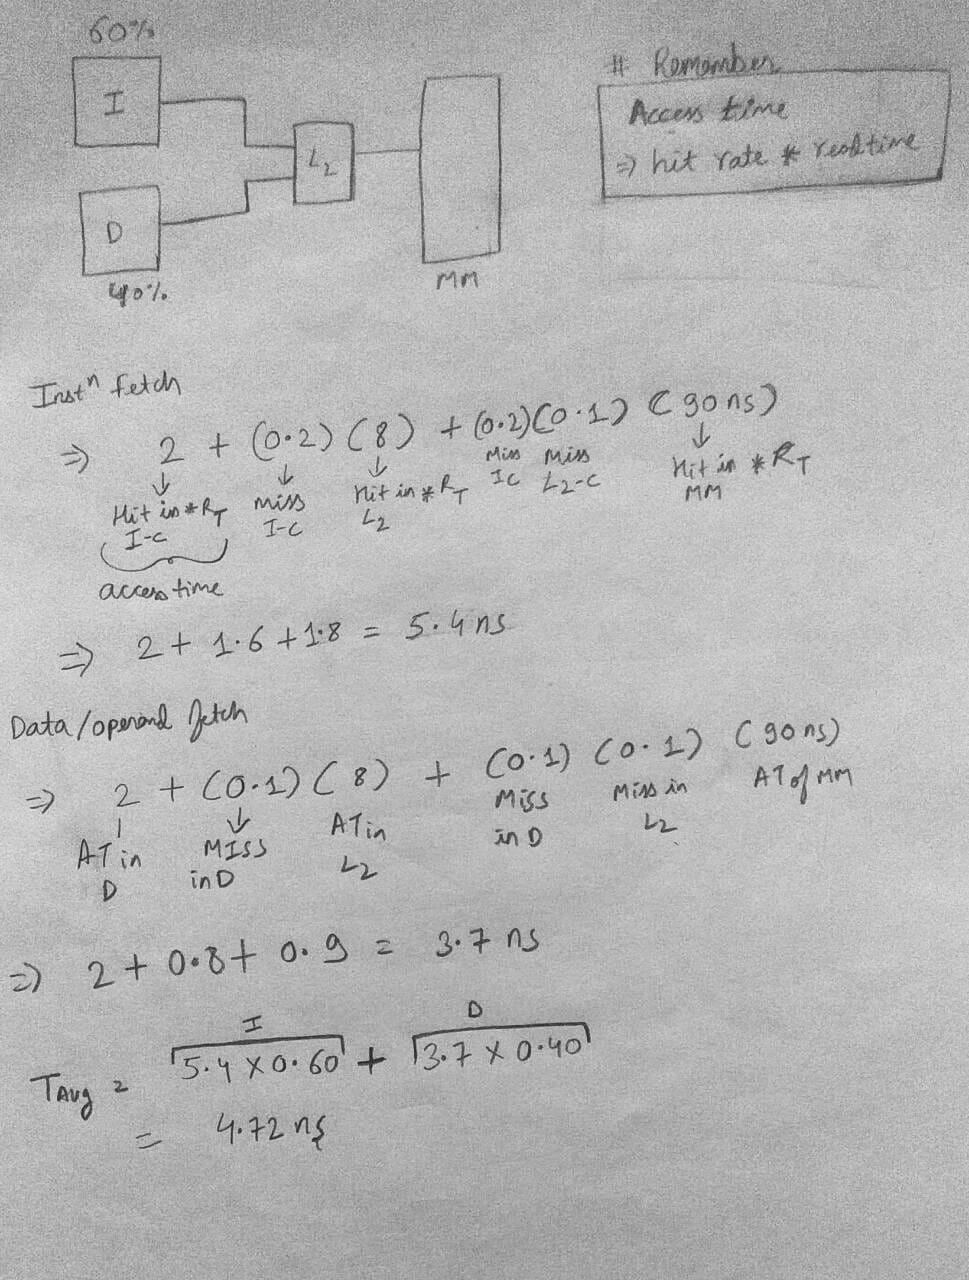 60%
I
D
40%
L2
MM
# Remember
Access time
=> hit rate * read time
Instⁿ fetch
=> 2 + (0.2) (8) + (0.2)(0.1) (90ns)
↓ ↓ ↓ Miss Miss ↓
Hit in * RT miss Hit in * RT IC L2-C Hit in * RT
I-C I-C L2 MM
access time
=> 2 + 1.6 + 1.8 = 5.4 ns
Data/operand fetch
=> 2 + (0.1) (8) + (0.1) (0.1) (90ns)
AT in MISS AT in Miss Miss in AT of MM
D in D L2 in D L2
=> 2 + 0.8 + 0.9 = 3.7 ns
I D
TAvg = 5.4 X 0.60 + 3.7 X 0.40
= 4.72 ns